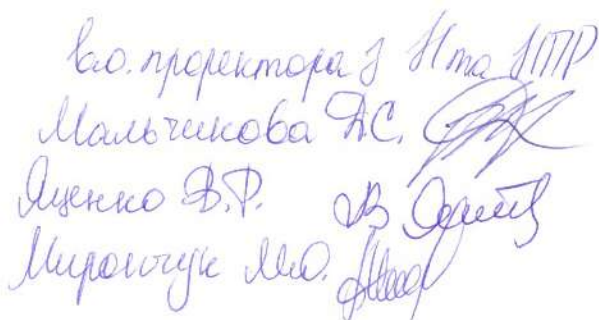 в.о. проректора з Н та НТР
Мальчикова Д.С.
Яценко В.Р.
Мирончук М.О.